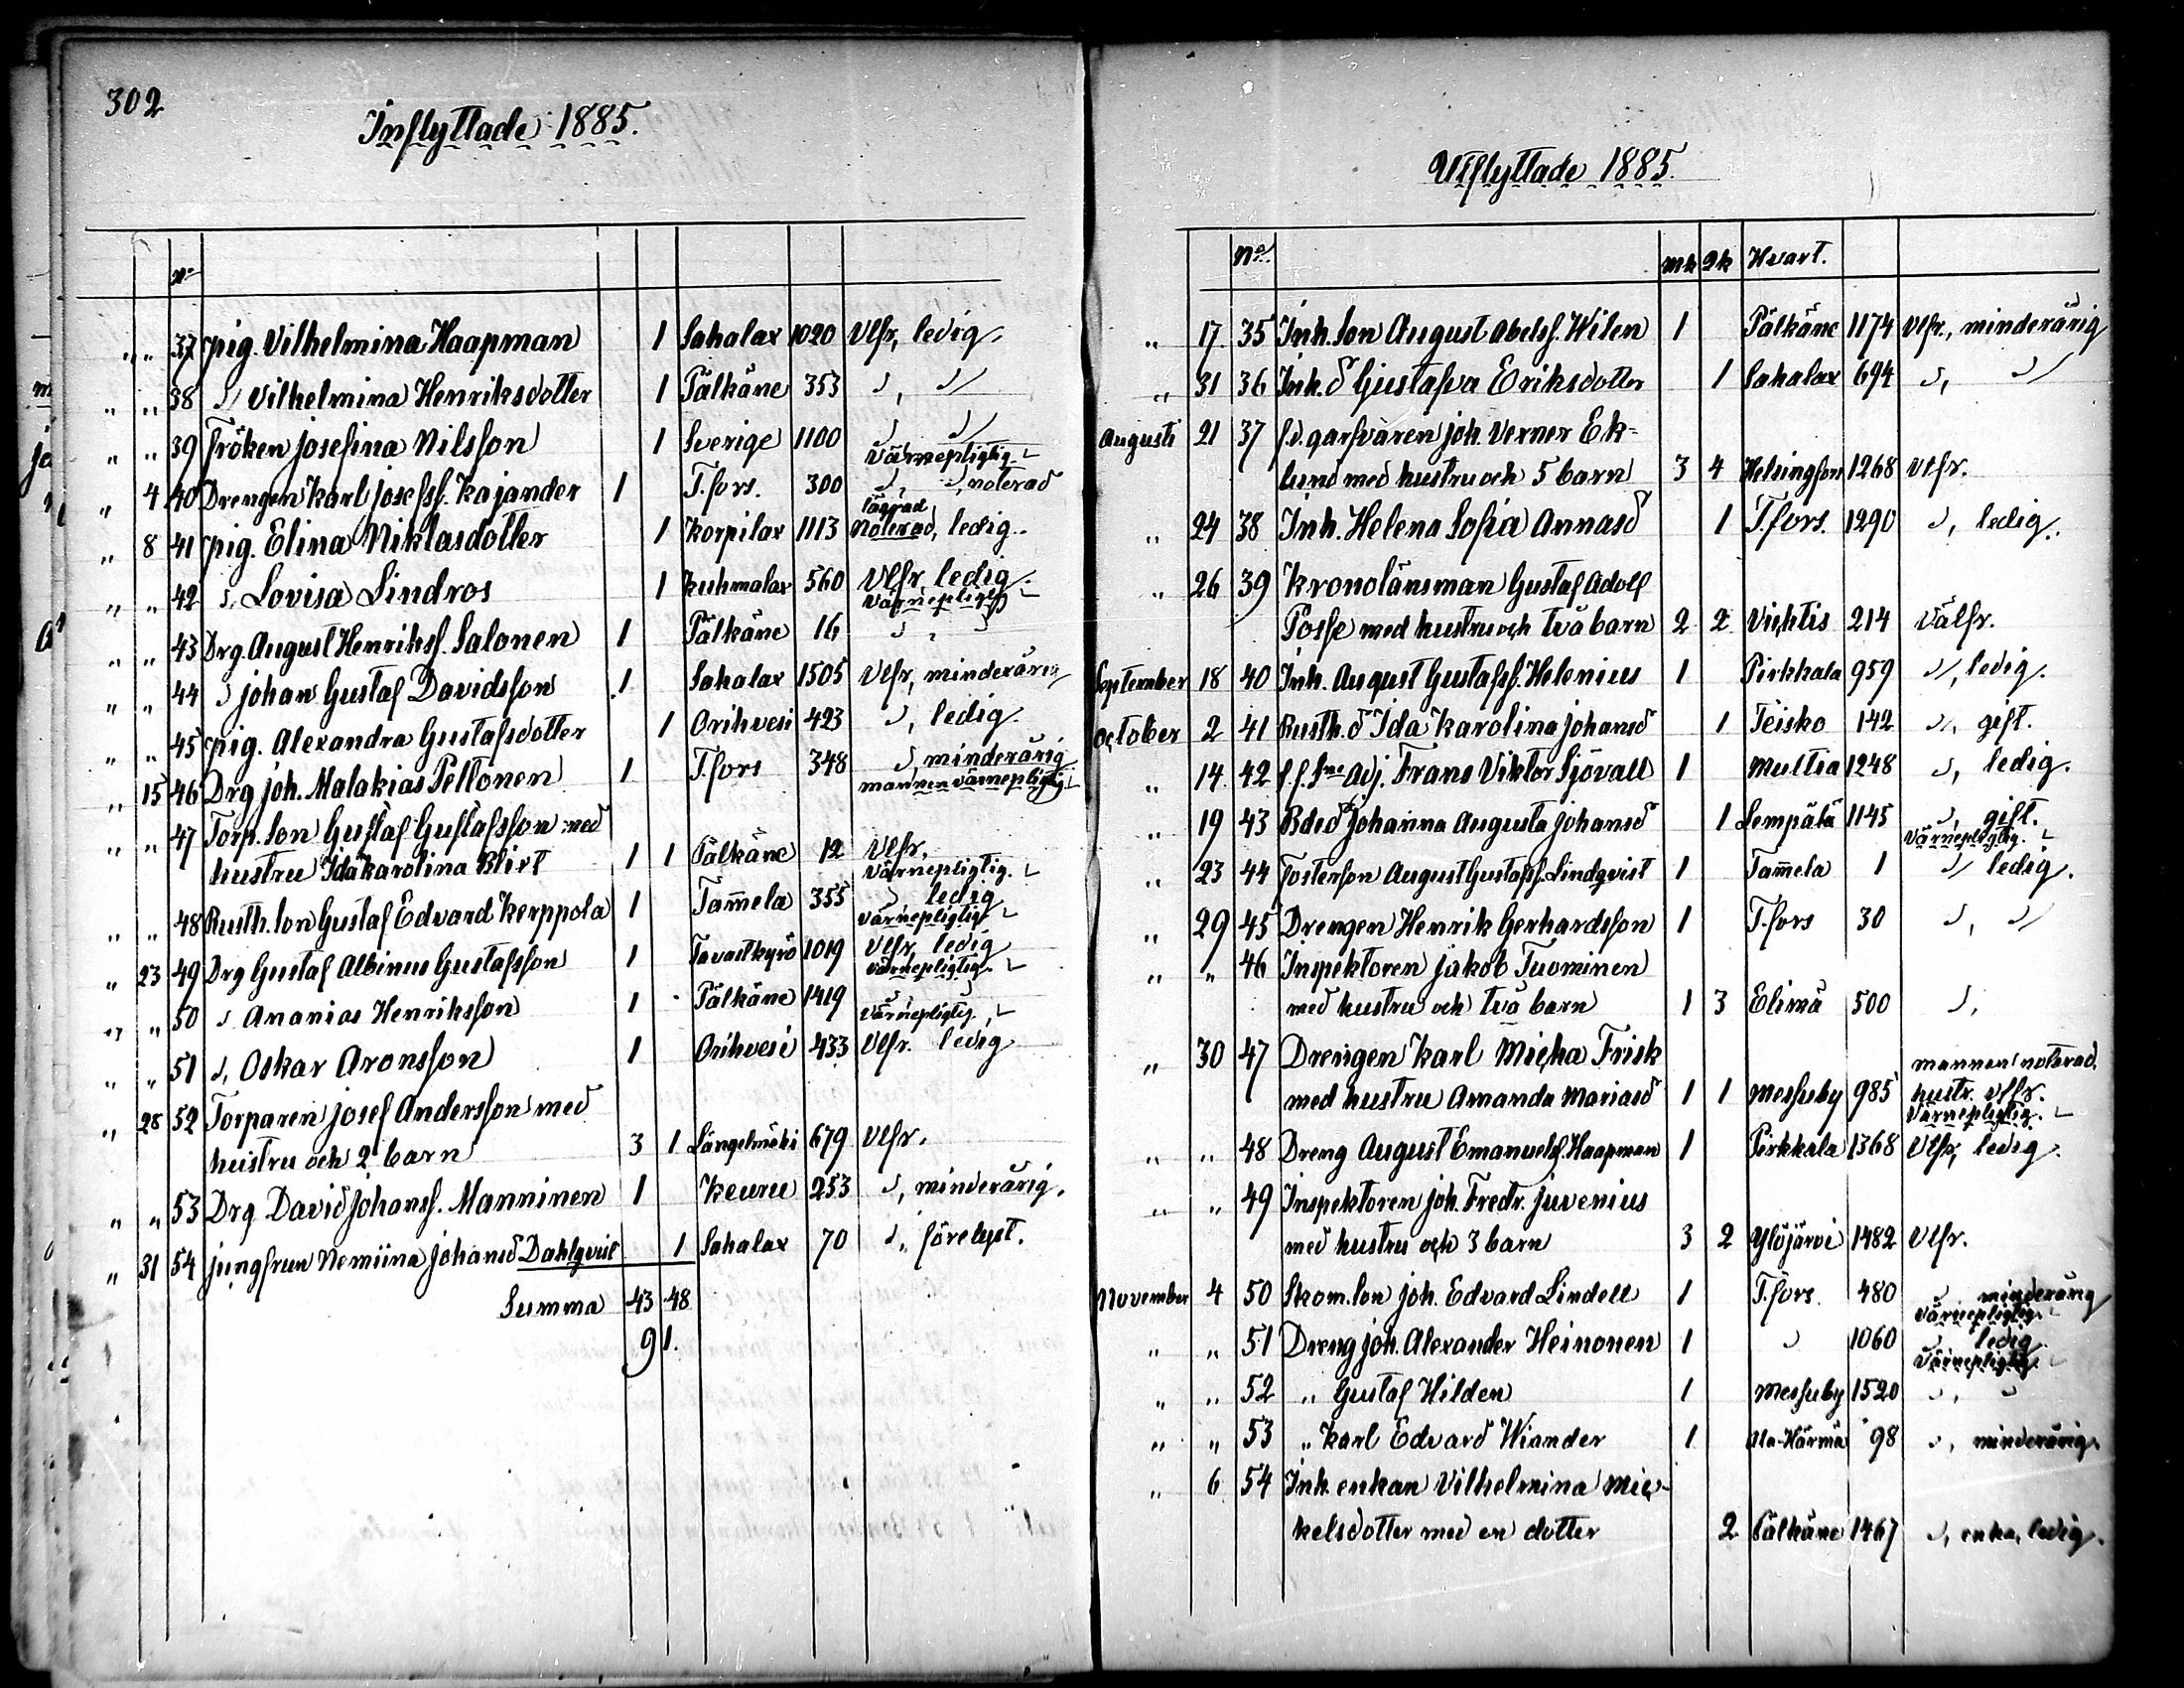 302
Inflyttade 1885.
No
" " 37 pig. Vilhelmina Haapman 1 Sahalax 1020 Vlfr, ledig.
" " 38 " Vilhelmina Henriksdotter 1 Pälkäne 353 ", "
" " 39 Fröken Josefina Nilsson 1 Sverige 1100 " "
värnepligtig.
" 4 40 Drengen Karl Josefss. Kajander 1 T.fors. 300 " , noterad
lagrad
" 8 41 pig. Elina Niklasdotter 1 Korpilax 1113 Noterad, ledig.
" " 42 " Lovisa Lindros 1 Kuhmalax 560 Vlfr, ledig.
Värnepligtig
" " 43 Drg. August Henrikss. Salonen 1 Pälkäne 16 " , "
" " 44 " Johan Gustaf Davidsson 1 Sahalax 1505 Vlfr, minderårig
" " 45 pig. Alexandra Gustafsdotter 1 Orihvesi 423 ", ledig.
" 15 46 Drg Joh. Malakias Peltonen 1 T.fors 348 " minderårig
mannen värnepligtig
" " 47 Torp. Son Gustaf Gustafsson med
hustru Ida Karolina Blixt 1 1 Pälkäne 12 Vlfr.
Värnepligtig.
" " 48 Rusth. Son Gustaf Edvard Kerppola 1 Tam̄ela 355 " ledig
värnepligtig
" 23 49 Drg Gustaf Albinus Gustafsson 1 Tavastkyrö 1019 Vlfr, ledig
värnepligtig.
" " 50 " Ananias Henriksson 1 Pälkäne 1419 " "
värnepligtig.
" " 51 ", Oskar Aronsson 1 Orihvesi 433 Vlfr. ledig
" 28 52 Torparen Josef Andersson med
hustru och 2 barn 3 1 Längelmäki 679 Vlfr.
" " 53 Drg David Johanss. Manninen 1 Keuru 253 ", minderårig.
" 31 54 jungfrun Nemiina Johansd Dahlqvist 1 Sahalax 70 ", förelyst.
Summa 43 48
91.
Utflyttade 1885.
No. mk qk Hvart.
" 17 35 Inh. Son August Abelss. Wilen 1 Pälkäne 1174 Vlfr., minderårig
" 31 36 Inh. d Gustafva Eriksdotter 1 Sahalax 694 ", "
Augusti 21 37 f.d. garfvaren Joh. Verner Ek-
lund med hustru och 5 barn 3 4 Helsingfors 1268 Vlfr.
" 24 38 Inh. Helena Sofia Annasd 1 T.fors. 1290 ", ledig.
" 26 39 Kronolänsman Gustaf Adolf
Posse med hustru och två barn 2 2 Vichtis 214 Välfr.
September 18 40 Inh. August Gustafss. Helenius 1 Pirkkala 959 ", ledig.
October 2 41 Rusth. d Ida Karolina Johansd 1 Teisko 142 ", gift.
" 14 42 f.f. Sne Adj. Frans Viktor Sjövall 1 Multia 1248 ", ledig.
" 19 43 Bded Johanna Augusta Johansd 1 Lempälä 1145 ", gift.
Värnepligtig.
" 23 44 Fosterson August Gustafss. Lindqvist 1 Tam̄ela 1 " ledig.
" 29 45 Drengen Henrik Gerhardsson 1 T.fors 30 ", "
" " 46 Inspektoren Jakob Tuominen
med hustru och två barn 1 3 Elimä 500 ",
" 30 47 Drengen Karl Micha Frisk
mannen noterad.
med hustru Amanda Mariasd 1 1 Messuby 985 hustr. vlfr.
Värnepligtig.
" " 48 Dreng August Emanuelss. Haapman 1 Pirkkala 1368 Vlfr, ledig.
" " 49 Inspektoren Joh. Fredr. Juvenius
med hustru och 3 barn 3 2 Ylöjärvi 1482 Vlfr.
November 4 50 Skom. Son Joh. Edvard Lindell 1 T.fors 480 " minderårig
Värnepligtig.
" " 51 Dreng Joh. Alexander Heinonen 1 " 1060 " ledig
Värnepligtig.
" " 52 " Gustaf Hilden 1 Messuby 1520 ", "
" " 53 " Karl Edvard Wiander 1 Ala-Härmä 98 ", minderårig.
" 6 54 Inh. enkan Vilhelmina Mic-
kelsdotter med en dotter 2 Pälkäne 1467 ", enka, ledig.